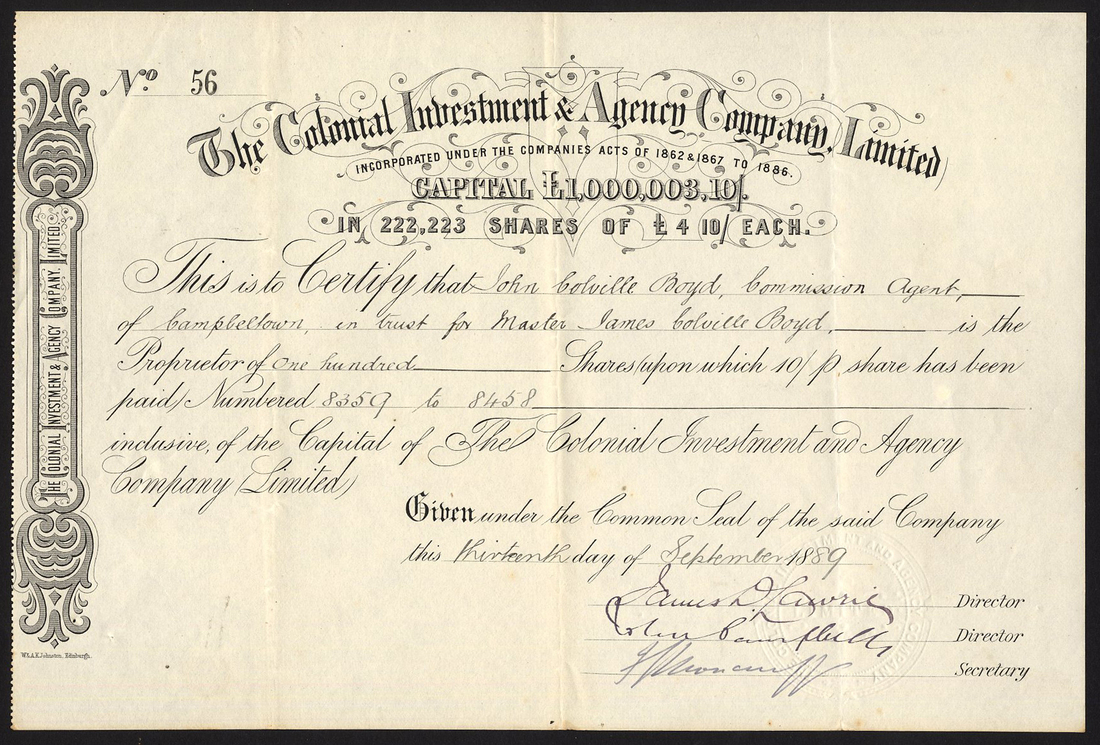 No 56
The Colonial Investment & Agency Company, Limited
INCORPORATED UNDER THE COMPANIES ACTS OF 1862 & 1867 TO 1886.
CAPITAL £1,000,003,10/.
IN 222,223 SHARES OF £4 10/ EACH.
This is to Certify that John Colville Boyd, Commission Agent,
of Campbeltown, in trust for Master James Colville Boyd, is the
Proprietor of One hundred Shares (upon which 10/ p share has been
paid) Numbered 8359 to 8458
inclusive, of the Capital of The Colonial Investment and Agency
Company (Limited)
Given under the Common Seal of the said Company
this thirteenth day of September 1889
James D. Lawrie Director
John Campbell Director
Secretary
THE COLONIAL INVESTMENT & AGENCY COMPANY, LIMITED.
W. & A.K. Johnston, Edinburgh.